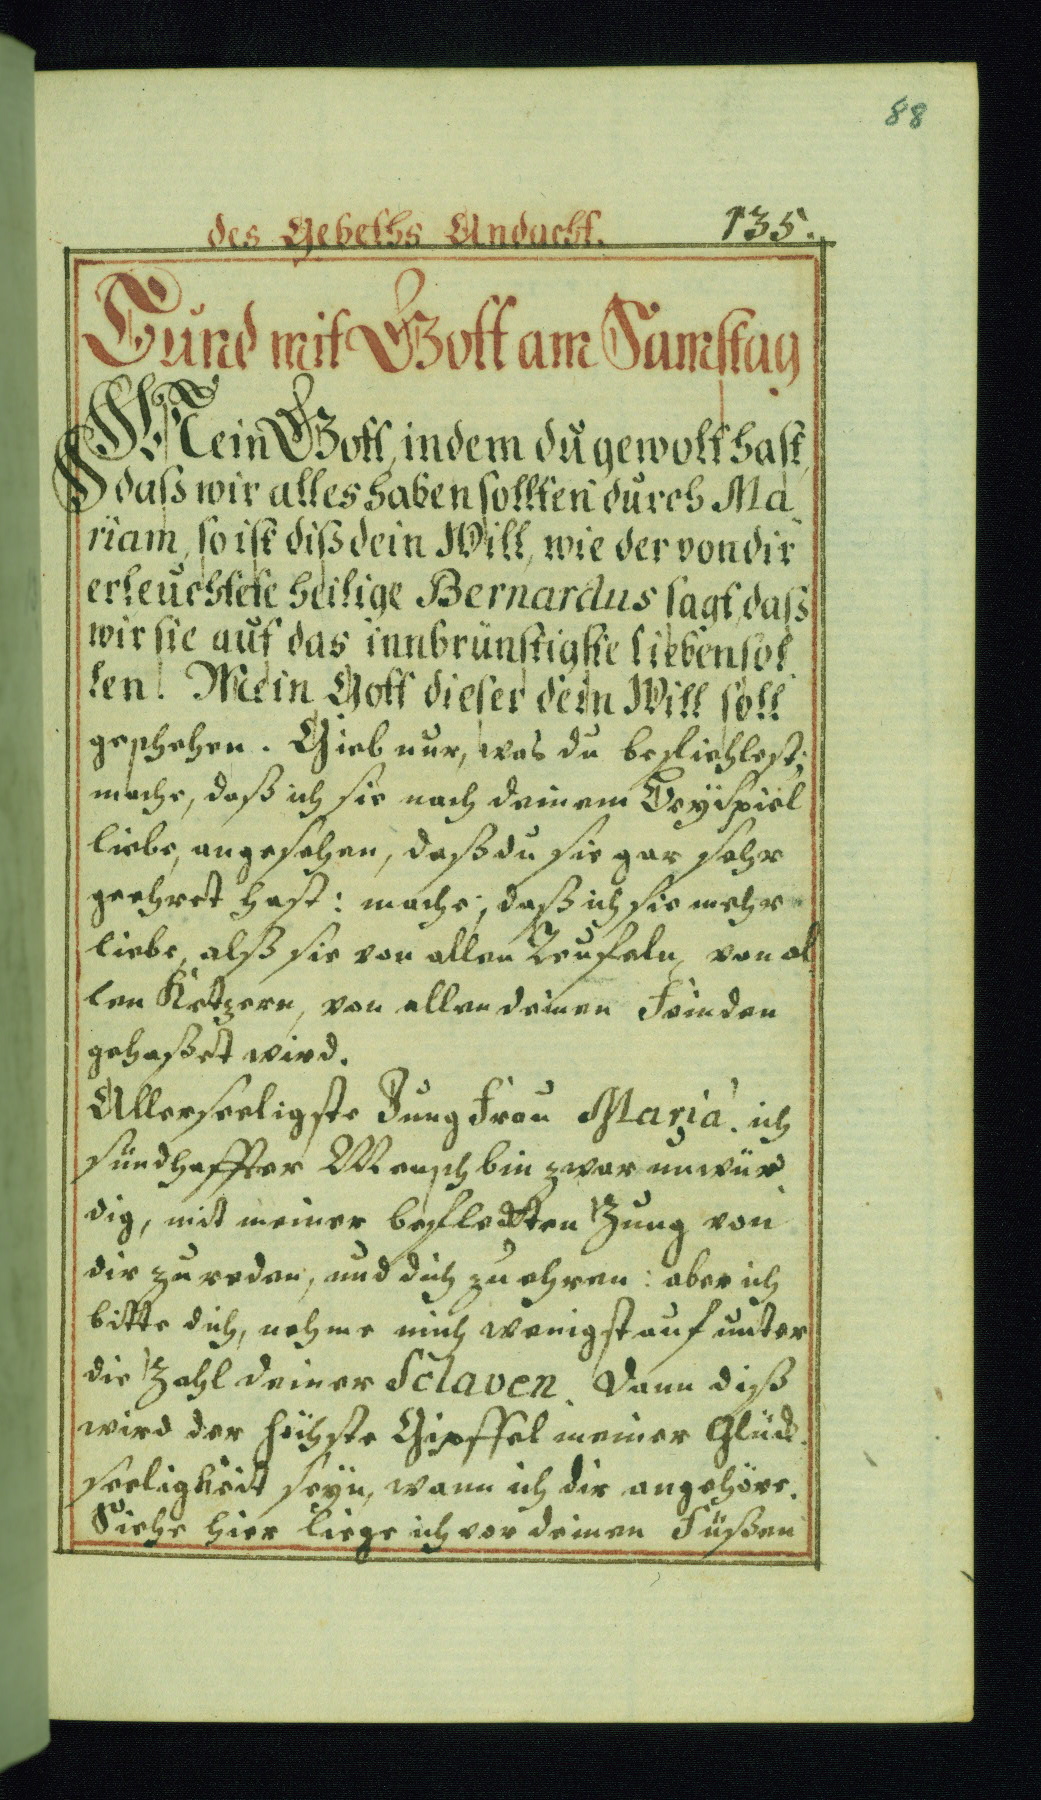 88
des Gebeths Andacht. 135.
Bund mit Gott am Samstag
Mein Gott, indem du gewolt hast,
daß wir alles haben sollten durch Ma
riam, so ist diß dein Will, wie der von dir
erleuchtete heilige Bernardus sagt, daß
wir sie auf das innbrünstigste lieben sol
len. Mein Gott dieser dein Will soll
geschehen. Gieb nur, was du befiehlest;
mache, daß ich sie nach deinem Beÿspiel
liebe, angesehen, daß du sie gar sehr
geehret hast: mache, daß ich sie mehr
liebe, alß sie von allen Teufeln, von al
len Ketzern, von allen deinen Feinden
gehaßet wird.
Allerseeligste Jungfrau Maria! ich
sündhaffter Mensch bin zwar unwür
dig, mit meiner befleckten Zung von
dir zu reden, und dich zu ehren: aber ich
bitte dich, nehme mich wenigst auf unter
die Zahl deiner Sclaven. Dann diß
wird der höchste Gipffel meiner Glück
seeligkeit seÿn, wann ich dir angehöre.
Siehe hier liege ich vor deinen Füßen